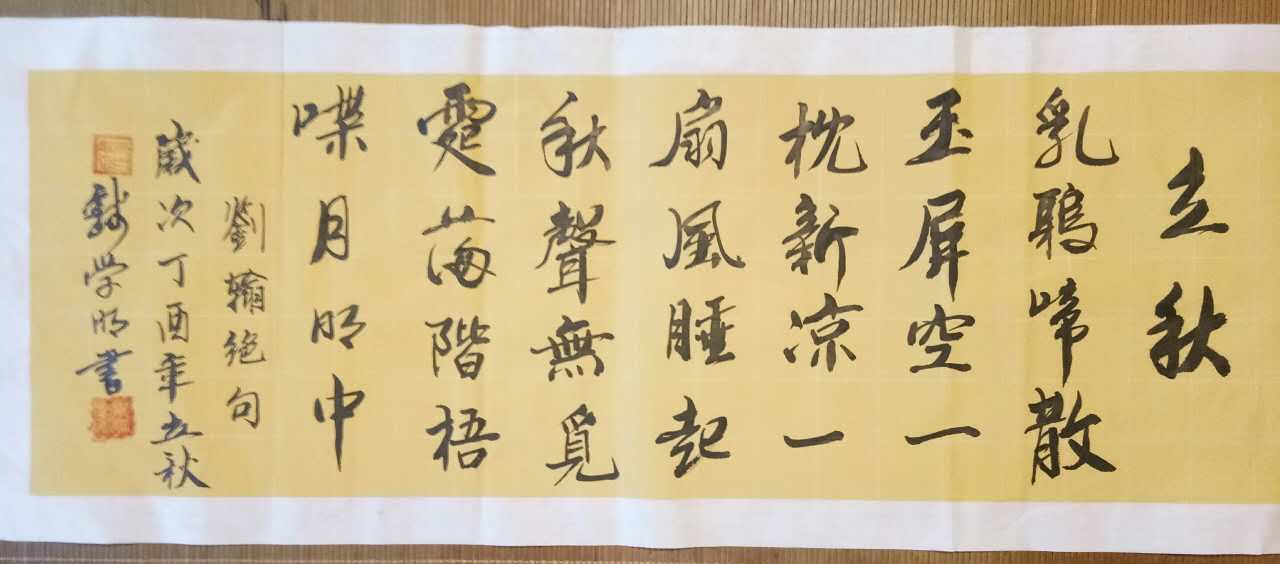 立秋
乳鴉啼散
玉屏空一
枕新凉一
扇風睡起
秋聲無覓
處滿階梧
葉月明中
劉翰絕句
歲次丁酉年立秋
錢学明書